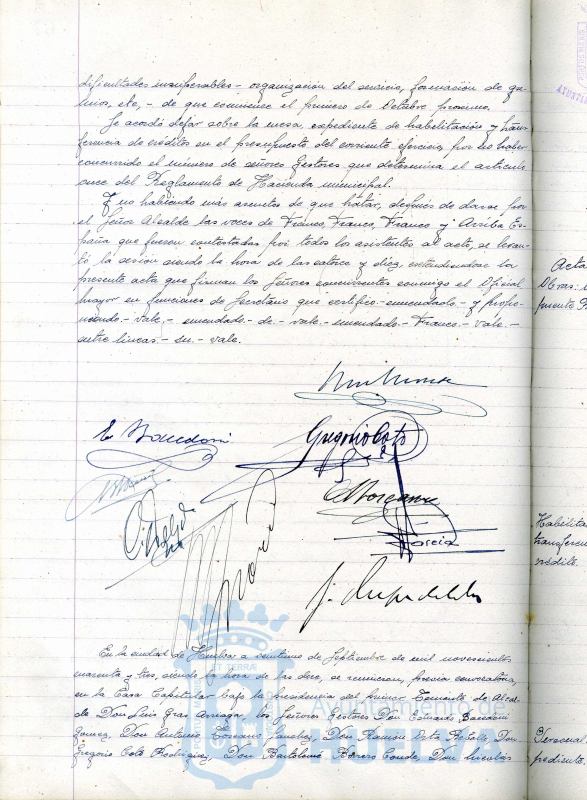 dificultades insuperables - organización del servicio, formación de gre-
mios, etc, - de que comience el primero de Octubre proximo.
Se acordó dejar sobre la mesa, expediente de habilitación y trans-
ferencia de créditos en el presupuesto del corriente ejercicio, por no haber
concurrido el número de señores Gestores que determina el articulo
once del Reglamento de Hacienda municipal.
Y no habiendo más asuntos de que tratar, después de darse por
el Señor Alcalde las voces de Franco, Franco, Franco y Arriba Es-
paña que fueron contestadas por todos los asistentes al acto, se levan-
tó la sesión siendo la hora de las catorce y diez, entendiendose la
presente acta que firman los Señores concurrentes conmigo el Oficial
mayor en funciones de Secretario que certifico - enmendado - y propo-
niendo - vale - enmendado - de - vale - enmendado - Franco - vale -
entre lineas - su - vale.
E. Barcedoni
Gregorio Coto
García
En la ciudad de Huelva a veintiuno de Septiembre de mil novecientos
cuarenta y tres, siendo la hora de las doce, se reunieron, previa convocatoria,
en la Casa Capitular bajo la presidencia del primer Teniente de Alcal-
de Don Luis Gras Arreaga, los Señores Gestores Don Eduardo
Gomez, Don Antonio Toscano Sanchez, Don Ramon Orta Rebollo, Don
Gregorio Coto Rodriguez, Don Bartolomé Borrero Conde, Don
Acta
Obras:
Habilita
transferen
crédito.
pediente.
Ayuntamiento de
HUELVA